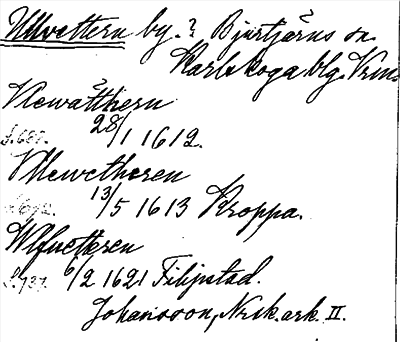 Ullvettern by. ? Bjurtjärns sn.
Karlskoga blg. Vrm.
Vlewätthern
s. 687. 28/1 1612.
Vllewetheren
s. 692. 13/5 1613 Kroppa.
Wlfuetteren
s. 737. 6/2 1621 Filipstad.
Johansson, Nrsk. ark. II.